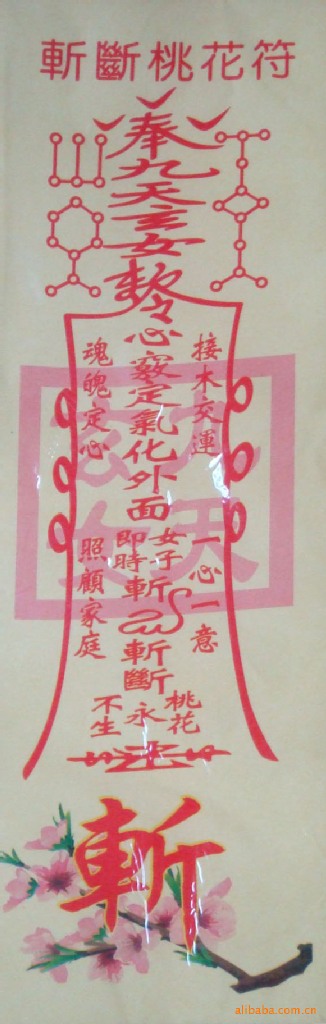 斬斷桃花符
接木交運
一心一意
奉九天玄女敕令
心竅定氣化外面
女子
即時
斬
斬斷
桃花
永
不生
魂魄定心
照顧家庭
九天
玄女
斬
alibaba.com.cn